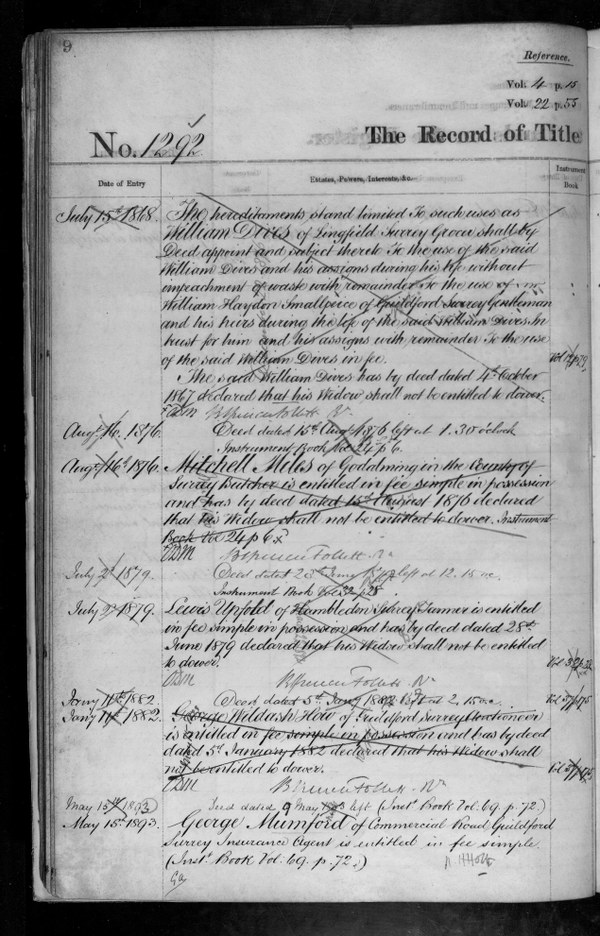 9
Reference.
Vol. 4 p. 15
Vol. 22 p. 55
No. 1292
The Record of Title
Date of Entry
Estates, Powers, Interests, &c.
Instrument Book
July 15th 1868.
The hereditaments stand limited To such uses as
William Dives of Lingfield Surrey Grocer shall by
Deed appoint and subject thereto To the use of the said
William Dives and his assigns during his life without
impeachment of waste with remainder To the use of
William Haydon Smallpeice of Guildford Surrey Gentleman
and his heirs during the life of the said William Dives In
trust for him and his assigns with remainder To the use
of the said William Dives in fee.
The said William Dives has by deed dated 4th October
1867 declared that his Widow shall not be entitled to dower.
B Spencer Follett Rr
Augt 16. 1876.
Deed dated 15th Augt 1876 left at 1.30 o'clock
Instrument Book Vol 24 p 6.
Augt 16th 1876.
Mitchell Miles of Godalming in the County of
Surrey Butcher is entitled in fee simple in possession
and has by deed dated 15th August 1876 declared
that his Widow shall not be entitled to dower. Instrument
Book Vol 24 p 6
B Spencer Follett Rr
July 2d 1879.
Deed dated left at 12.15
Instrument Book Vol 32 p 28
July 2d 1879.
Lewis Upfold of Hambledon Surrey Farmer is entitled
in fee simple in possession and has by deed dated 28th
June 1879 declared that his Widow shall not be entitled
to dower.
B Spencer Follett Rr
Jany 11th 1882.
Deed dated 5th Jany 1882 left at 2.15
Jany 11th 1882.
George Wildash How of Guildford Surrey Auctioneer
is entitled in fee simple in possession and has by deed
dated 5th January 1882 declared that his Widow shall
not be entitled to dower.
B Spencer Follett Rr
May 15th 1893
Deed dated 9 May 1893 left (Inst. Book Vol. 69. p. 72.)
May 15th 1893.
George Mumford of Commercial Road Guildford
Surrey Insurance Agent is entitled in fee simple.
(Inst. Book Vol. 69. p. 72.)